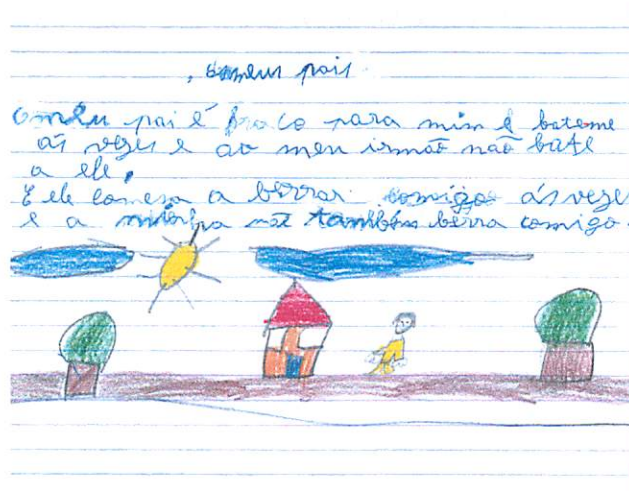 os meus pais
O meu pai é fraco para mim e bateme
ás vezes e ao meu irmão não bate
a ele.
E ele comesa a berrar comigo ás vezes
e a minha mãe também berra comigo.